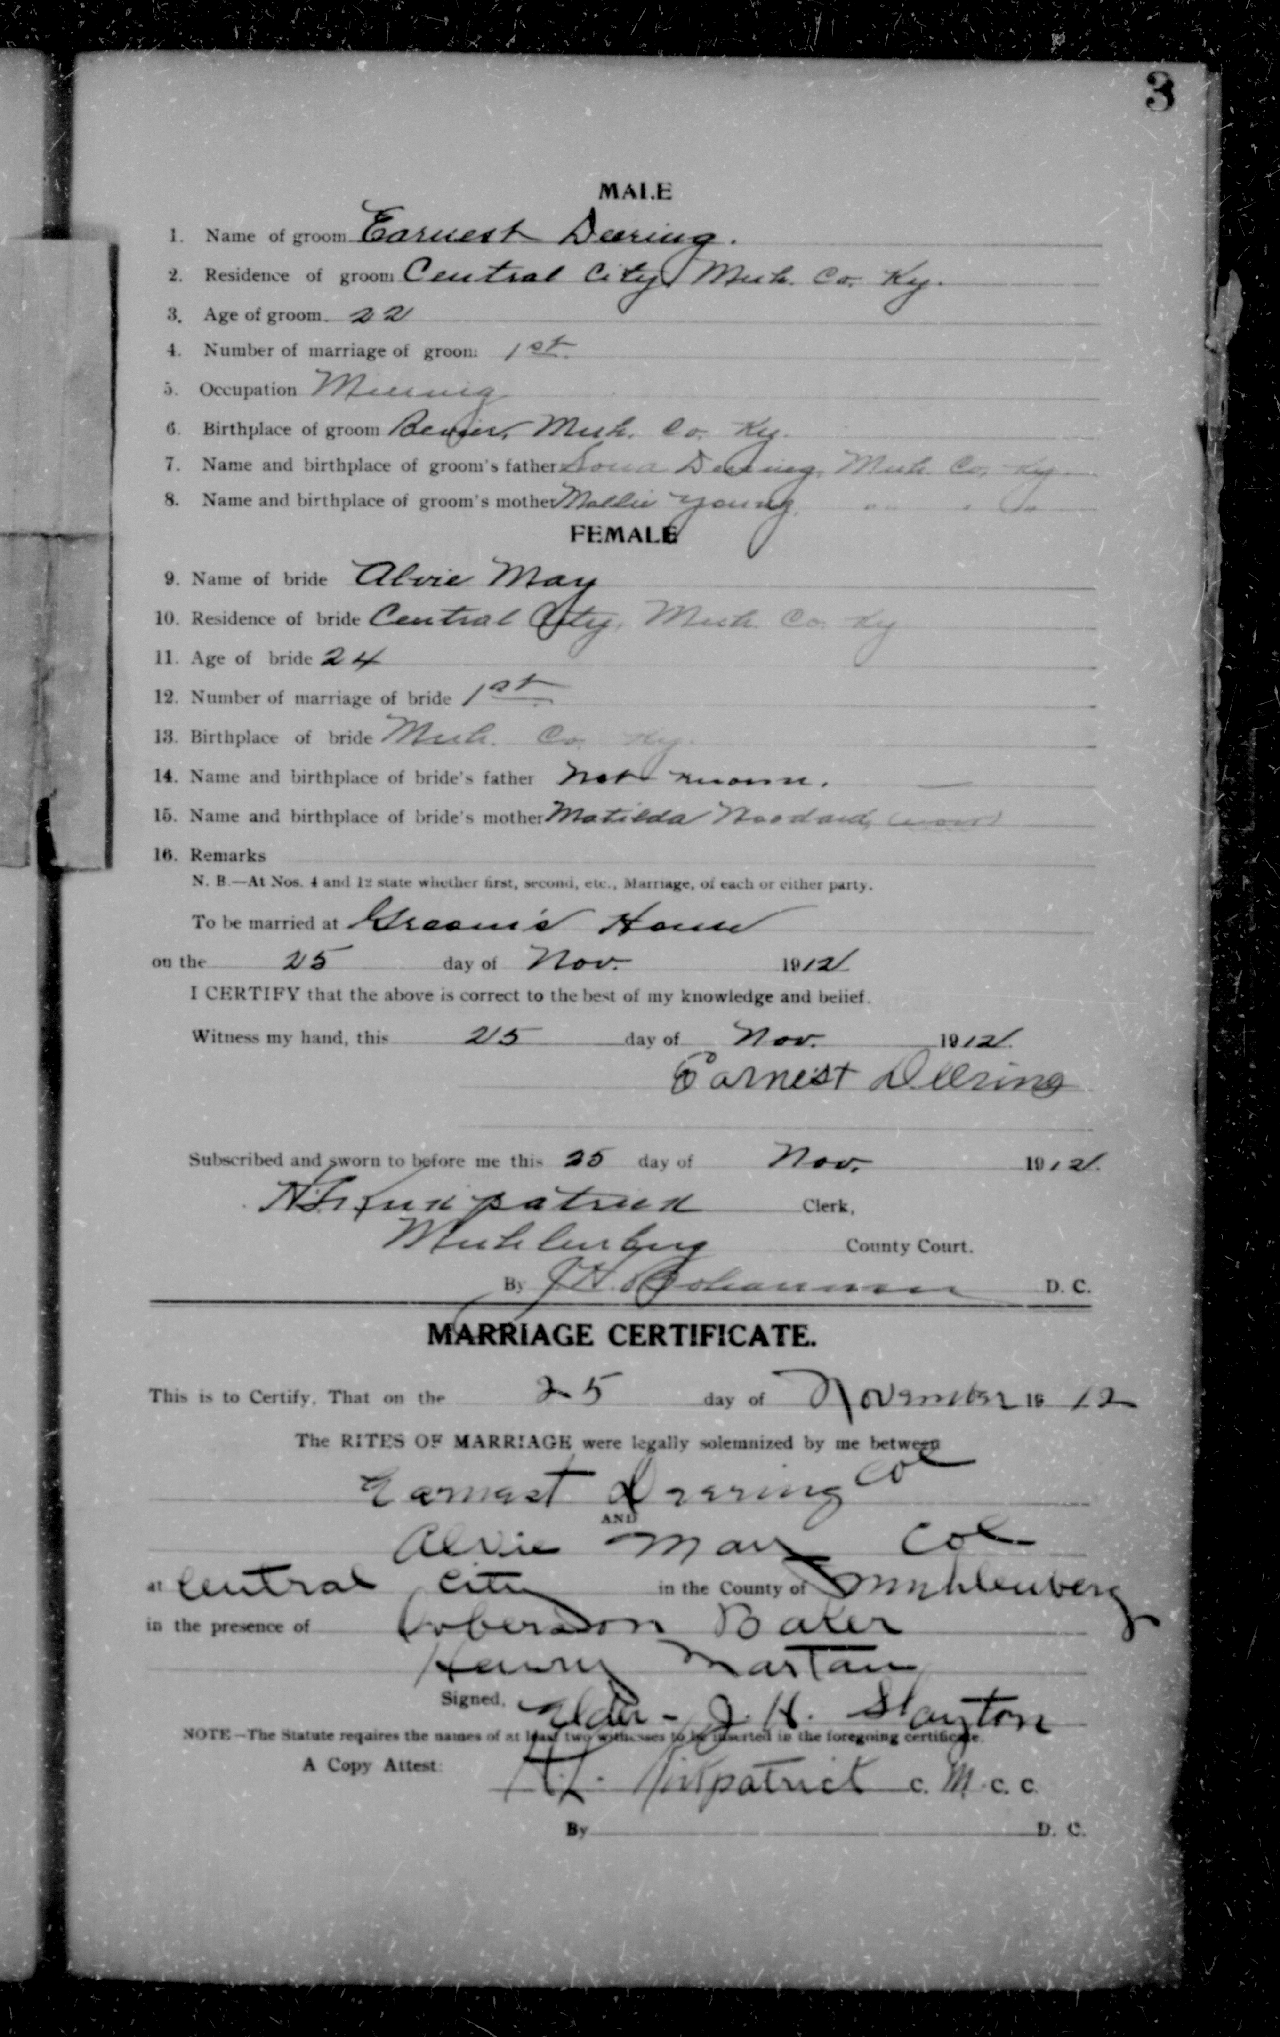 3
MALE
1. Name of groom Earnest Deering.
2. Residence of groom Central City, Muh. Co. Ky.
3. Age of groom 22
4. Number of marriage of groom 1st
5. Occupation Mining
6. Birthplace of groom Bevier, Muh. Co. Ky.
7. Name and birthplace of groom's father Deering, Muh. Co. Ky.
8. Name and birthplace of groom's mother Mollie Young,
FEMALE
9. Name of bride Alvie May
10. Residence of bride Central City, Muh Co. Ky
11. Age of bride 24
12. Number of marriage of bride 1st
13. Birthplace of bride Muh. Co. Ky.
14. Name and birthplace of bride's father Not known.
15. Name and birthplace of bride's mother Matilda Woodard,
16. Remarks
N. B.—At Nos. 4 and 12 state whether first, second, etc., Marriage, of each or either party.
To be married at Groom's House
on the 25 day of Nov. 1912
I CERTIFY that the above is correct to the best of my knowledge and belief.
Witness my hand, this 25 day of Nov. 1912
Earnest Deering
Subscribed and sworn to before me this 25 day of Nov. 1912.
H. L. Kirkpatrick Clerk,
Muhlenberg County Court.
By J. H. Bohannon D. C.
MARRIAGE CERTIFICATE.
This is to Certify, That on the 25 day of November 1912
The RITES OF MARRIAGE were legally solemnized by me between
Earnest Deering Col
AND
Alvie May Col
at Central City in the County of Muhlenberg
in the presence of Roberson Baker
Henry Martan
Signed, Elder - J. H. Slayton
NOTE—The Statute requires the names of at least two witnesses to be inserted in the foregoing certificate.
A Copy Attest: H.L. Kirkpatrick C. M. C. C.
By D. C.